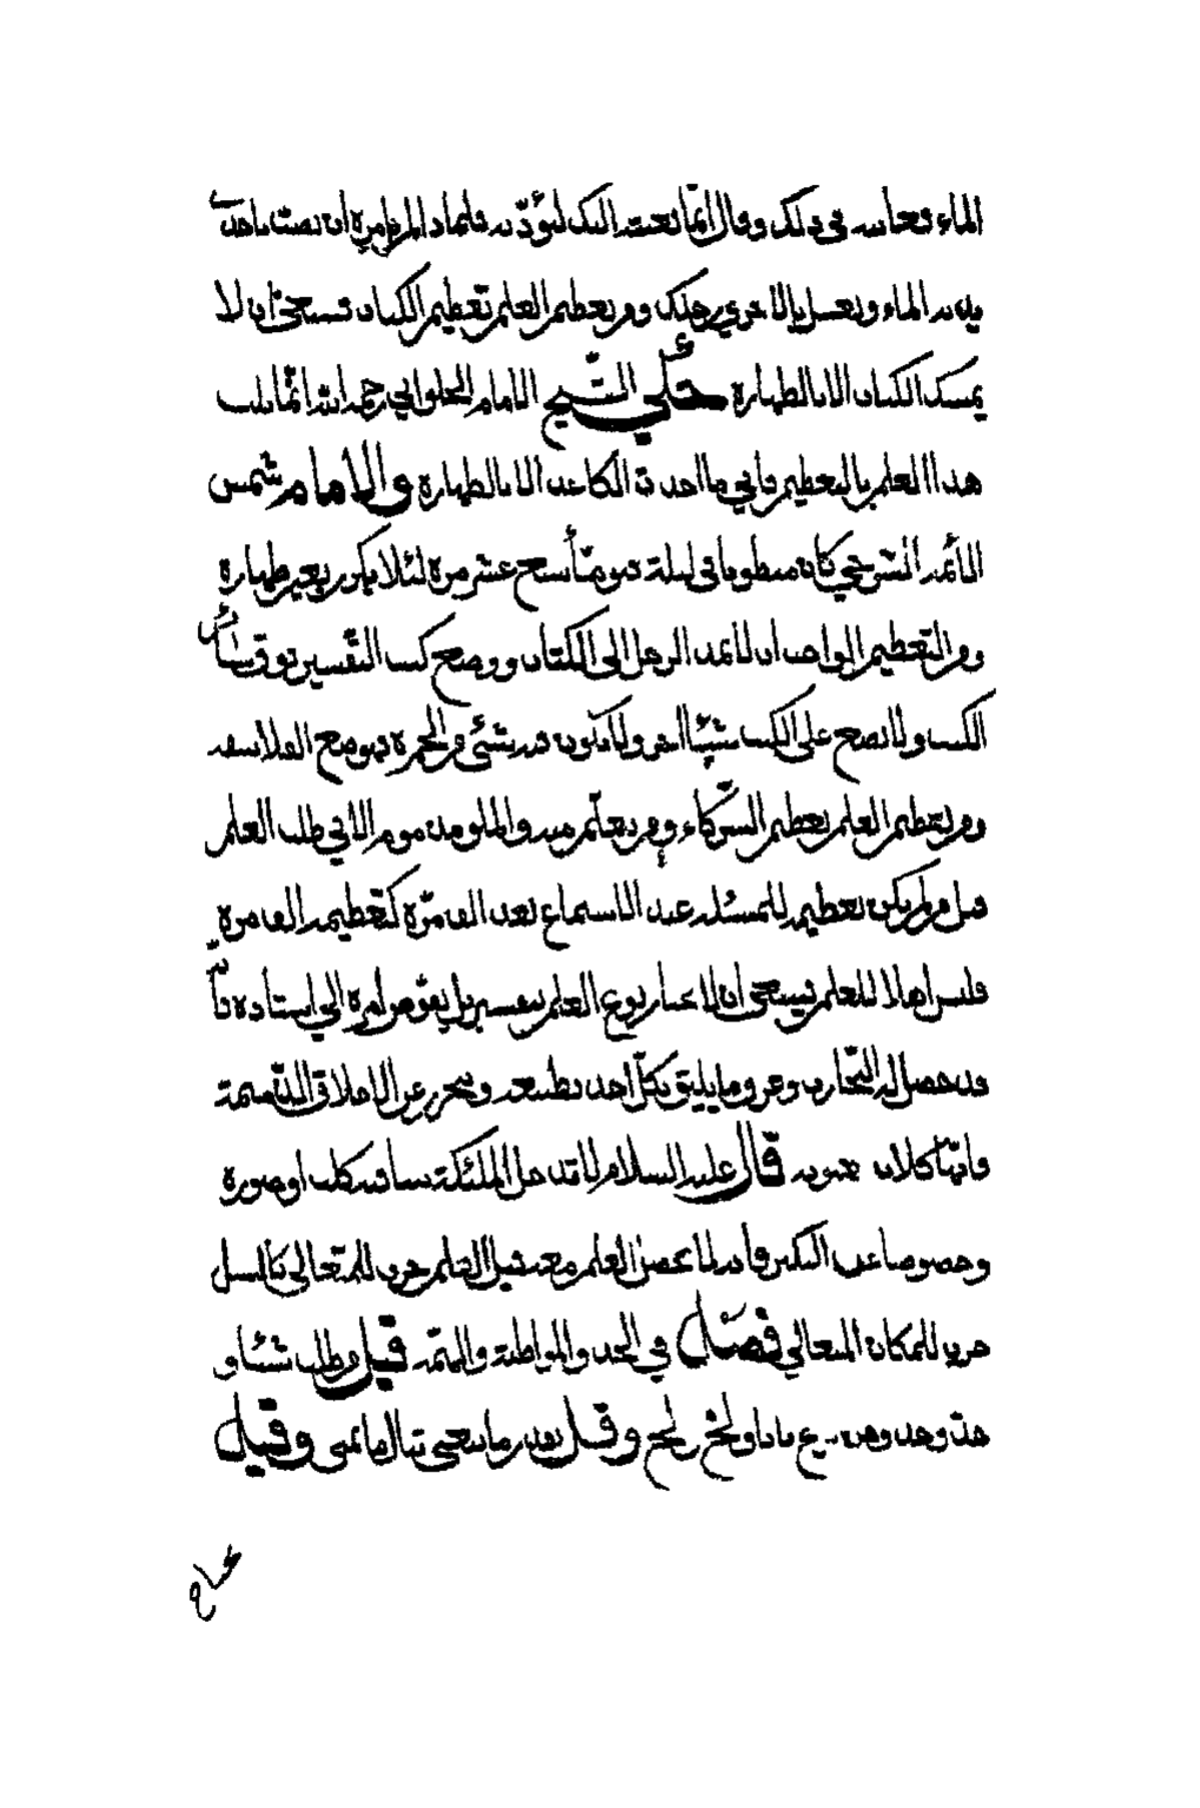 الماء فعاتبه في ذلك وقال انما بعثته اليك لتؤدبه فلماذا لم تامره ان يصب باحدى
يديه الماء ويغسل بالاخرى رجلك ومن تعظيم العلم تعظيم الكتاب فينبغي ان لا
يمسك الكتاب الا بالطهارة حكي الشيخ الامام الحلواني رحمه الله انما نلت
هذا العلم بالتعظيم فاني ما اخذت الكاغد الا بالطهارة والامام شمس
الائمه السرخسي كان مبطونا في ليلة توضأ سبع عشر مرة لئلا يكرر بغير طهارة
ومن التعظيم الواجب ان لا يمد الرجل الى الكتاب ووضع كتب التفسير فوق سائر
الكتب ولا يضع على الكتب شيئا اخر ولا يكون فيه شئ من الحمرة فهو صنع الفلاسفه
ومن تعظيم العلم تعظيم الشركاء ومن يعلم منه والملق مذموم الا في طلب العلم
قيل من لم يكن تعظيمه للمسئله عند الاستماع بعد الف مرة كتعظيمه الف مرة
فليس اهلا للعلم ينبغي ان لا يختار نوع العلم بنفسه بل يفوض امره الى استاده فانه
قد حصل له التجارب وعرف ما يليق بكل احد بطبيعته ويتحرز عن الاخلاق الذميمة
فانها كلاب معنويه قال عليه السلام لا تدخل الملئكة بيتا فيه كلب او صورة
وخصوصا عن التكبر فانه لا يحصل العلم معه قيل العلم حرب للمتعالى كالسيل
حرب للمكان المتعالي فصل في الجد والمواظبة والهمه قيل من طلب شيئا و
جد وجد ومن قرع بابا ولج ولج وقيل بقدر ما يتعنى ينال ما يتمنى وقيل